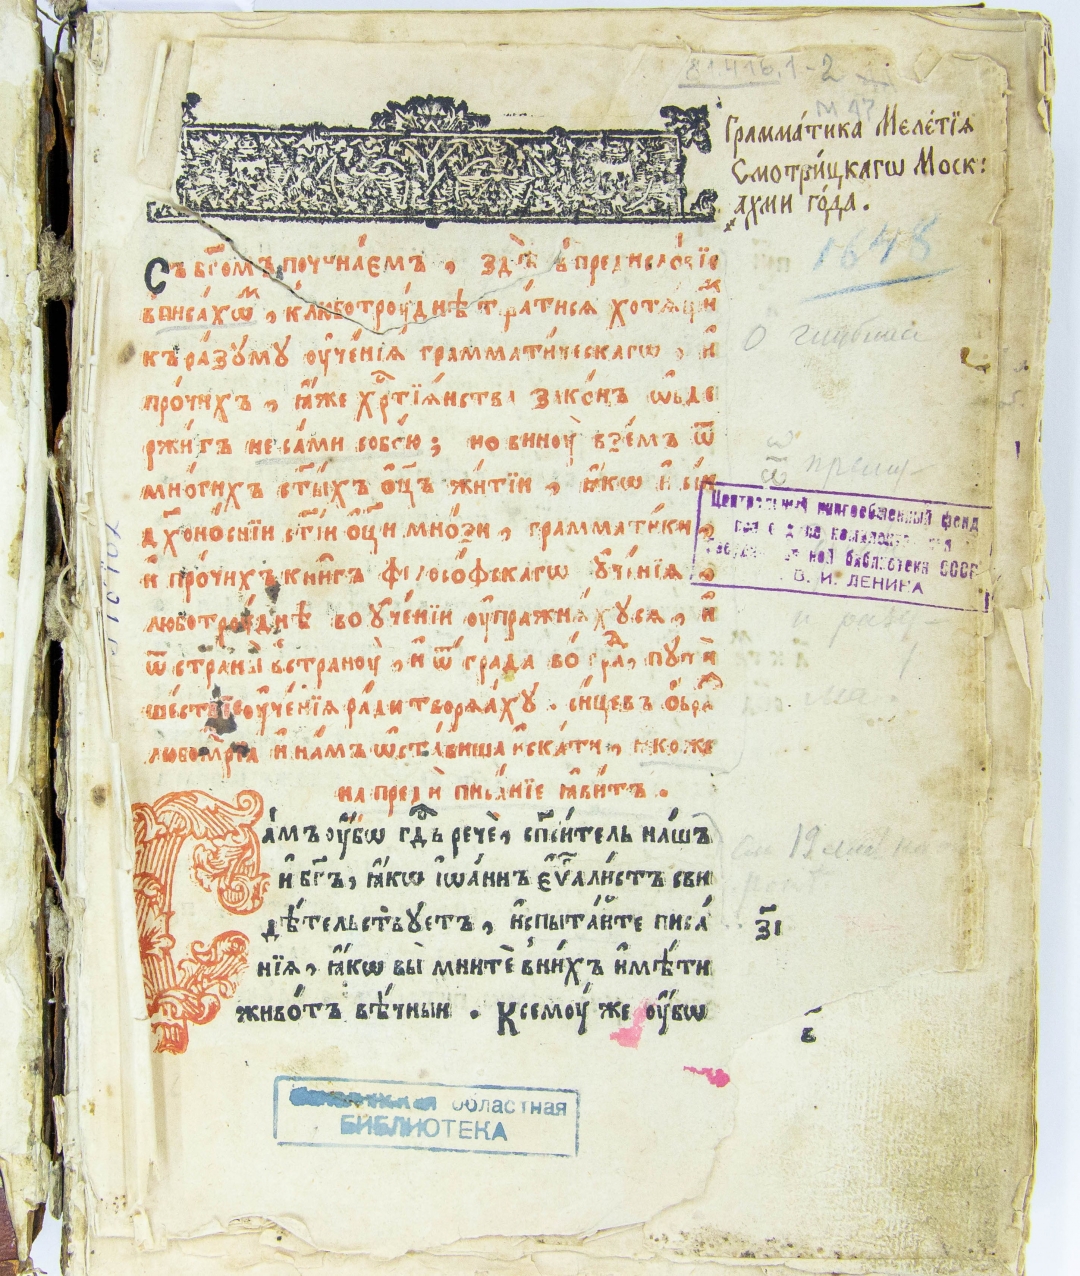 81.416.1-2
М 47
Грамма́тика Меле́тїѧ
Смотри́цкагѡ Моск:
ахми го́да.
1648
Съ бг҃омъ почина́емъ , здѣ̀ в̾предисло́вїе
к̾люботрꙋ́днѣ тща́тисѧ хотѧ́щи
къ ра́зуму оу҆че́нїѧ граммати́ческагѡ , и҆
про́чихъ , ꙗ҆́же хрⷭ҇тїѧ́нства зако́нъ ѡ҆бде
ржи́тъ не са́ми собо́ю ; но винꙋ̀ взе́мъ ѿ
мно́гихъ ст҃ы́хъ о҆ц҃ъ жи́тїи , ꙗ҆́кѡ и҆ бы́
дх҃оно́снїи ст҃і́и о҆ц҃и мно́зи , грамма́тики ,
и҆ про́чихъ кни́гъ філосо́фскагѡ оу҆че́нїѧ ,
люботрꙋ́днѣ во оу҆че́нїи оу҆пражнѧ́хусѧ , и҆
ѿ страны̀ в̾странꙋ̀ , и҆ ѿ гра́да во гра́дъ , пути
ше́ствїе оу҆че́нїѧ ра́ди творѧ́ху . си́цевъ о҆́бра
любомꙋ́дрїѧ и҆ на́мъ ѡ҆ста́виша и҆ска́ти , ꙗ҆́коже
на пред̾ и҆ писа́нїе ꙗ҆ви́тъ .
а́мъ оу҆́бѡ гдⷭ҇ь речѐ , сп҃си́тель на́шъ
и҆ бг҃ъ , ꙗ҆́кѡ і҆ѡа́ннъ є҆ѵⷢ҇алі́стъ сви
дѣ́тельствуетъ , и҆спыта́йте писа́
нїѧ , ꙗ҆́кѡ вы̀ мнитѐ в̾ни́хъ и҆мѣ́ти
живо́тъ вѣ́чныи . Ксемꙋ́ же оу҆́бѡ
з҃і
в҃
Центральный книгообменный фонд
библиотеки СССР
В. И. ЛЕНИНА
областная
БИБЛИОТЕКА